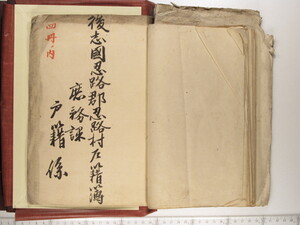 四冊ノ内
後志國忍路郡忍路村戸籍簿
庶務課
戸籍係